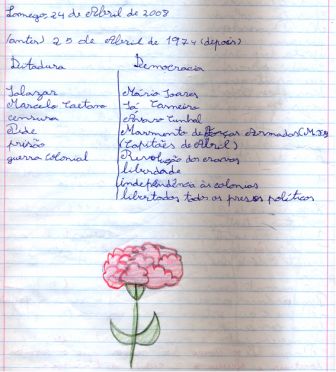 Lamego, 24 de Abril de 2008
(antes) 25 de Abril de 1974 (depois)
Ditadura Democracia
Salazar Mário Soares
Marcelo Caetano Sá Carneiro
censura Álvaro Cunhal
Pide Movimento de Forças Armadas (M.F.A)
prisão (Capitães de Abril)
guerra colonial Revolução dos cravos
liberdade
independência às colonias
libertados todos os presos políticos